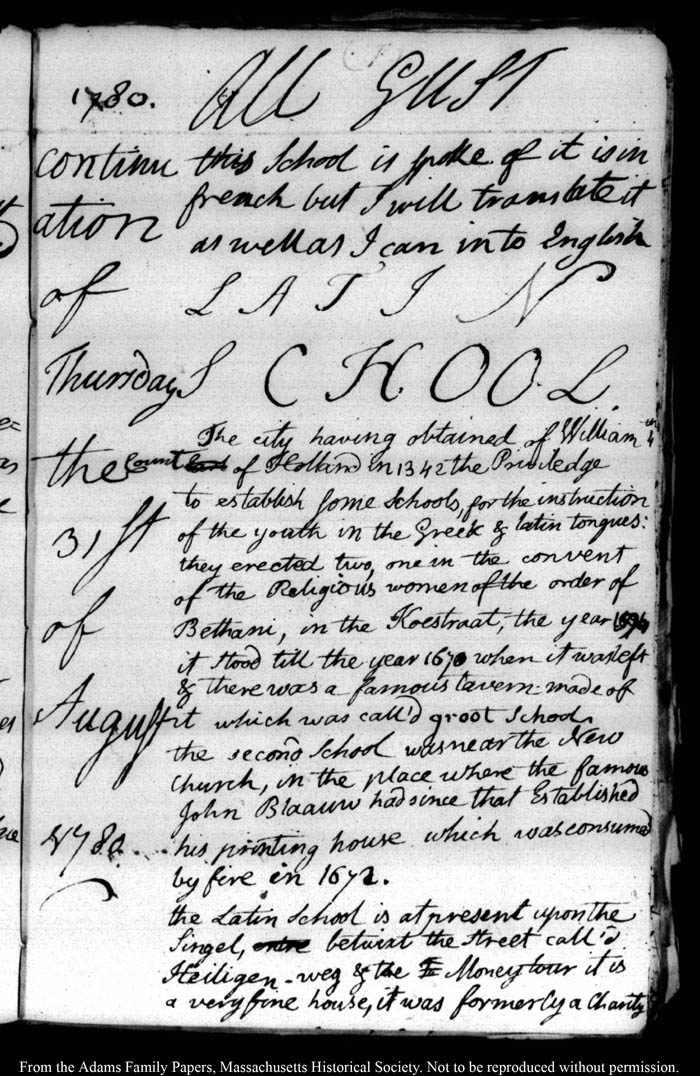 1780. AUGUST
continu this School is spoke of it is in
french but I will translate it
ation
as well as I can into English
of LATIN
Thursday SCHOOL
The city having obtained of William 4th
the Count of Holland in 1342 the Priviledge
to establish some Schools, for the instruction
31st of the youth in the Greek & latin tongues:
they erected two, one in the convent
of the Religious women of the order of
of Bethani, in the Koestraat, the year
it stood till the year 1670 when it was left
& there was a famous tavern made of
August it which was call'd groot School.
the second School was near the New
Church, in the place where the famous
John Blaauw had since that Established
1780.... his printing house which was consumed
by fire in 1672.
the Latin School is at present upon the
Singel, entre betwixt the street call'd
Heiligen-weg & the Money tour it is
a very fine house, it was formerly a Charity
From the Adams Family Papers, Massachusetts Historical Society. Not to be reproduced without permission.